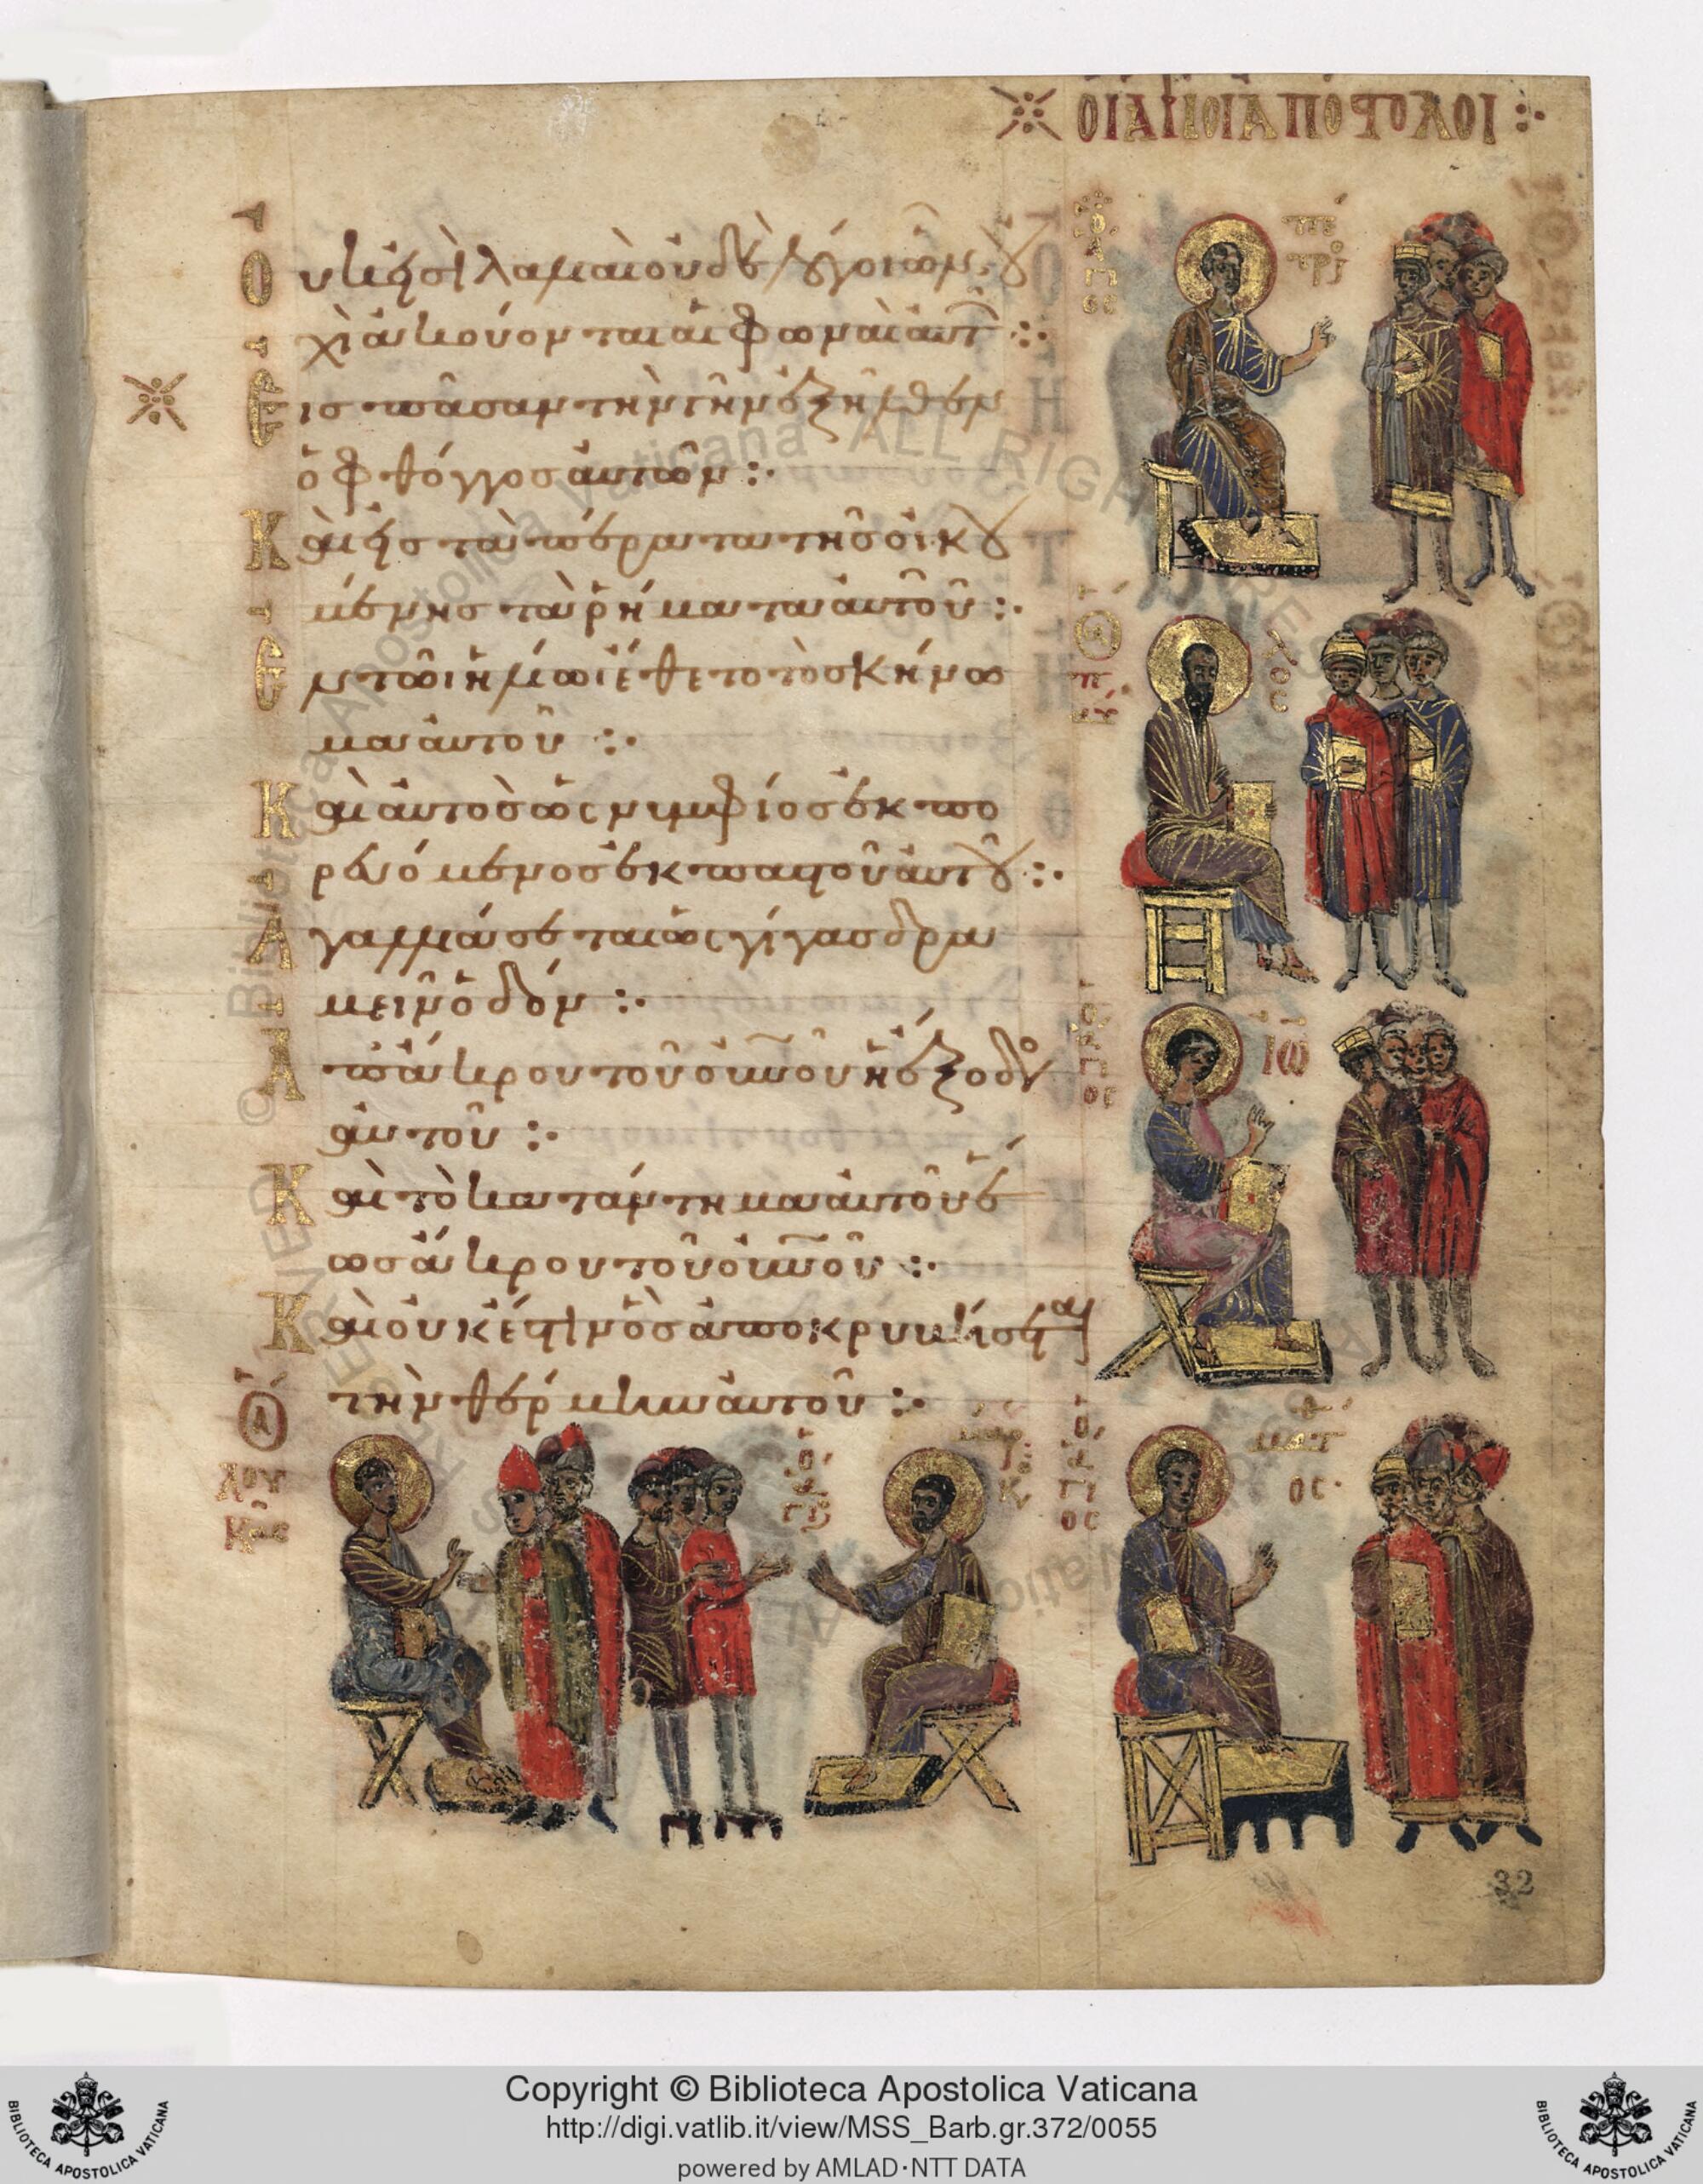 ΟΙΑΓΙΟΙΑΠΟϚΟΛΟΙ :·
Οὐκ εἰσὶ λαλιαὶ οὐδὲ λόγοι ὧν οὐ
χὶ ἀκούονται αἱ φωναὶ αὐτ̑ :·
Εἰς πᾶσαν τὴν γῆν ἐξῆλθεν
ὁ φθόγγος αὐτῶν :·
Καὶ εἰς τὰ πέρατα τῆς οἰκου
μένης τὰ ῥήματα αὐτοῦ :·
Ἐν τῶι ἡλίωι ἔθετο τὸ σκήνω
μα αὐτοῦ :·
Καὶ αὐτὸς ὡς νυμφίος ἐκπο
ρευόμενος ἐκ παστοῦ αὐτοῦ :·
Ἀγαλλιάσεται ὡς γίγας δρα
μεῖν ὁδόν :·
Ἀπ᾽ ἄκρου τοῦ οὐν̅οῦ ἡ ἔξοδο
αὐτοῦ :·
Καὶ τὸ κατάντημα αὐτοῦ ἕ
ως ἄκρου τοῦ οὐν̅οῦ :·
Καὶ οὐκ ἔστιν ὃς ἀποκρυβήσεται
τὴν θέρμην αὐτοῦ :·
πέ
τρ
λος
ΙΩ
ματ
θ
ος
Ὁ ἅ
λου
κας
μαρ
κο
32
Copyright © Biblioteca Apostolica Vaticana
http://digi.vatlib.it/view/MSS_Barb.gr.372/0055
powered by AMLAD·NTT DATA
BIBLIOTECA APOSTOLICA VATICANA
BIBLIOTECA APOSTOLICA VATICANA